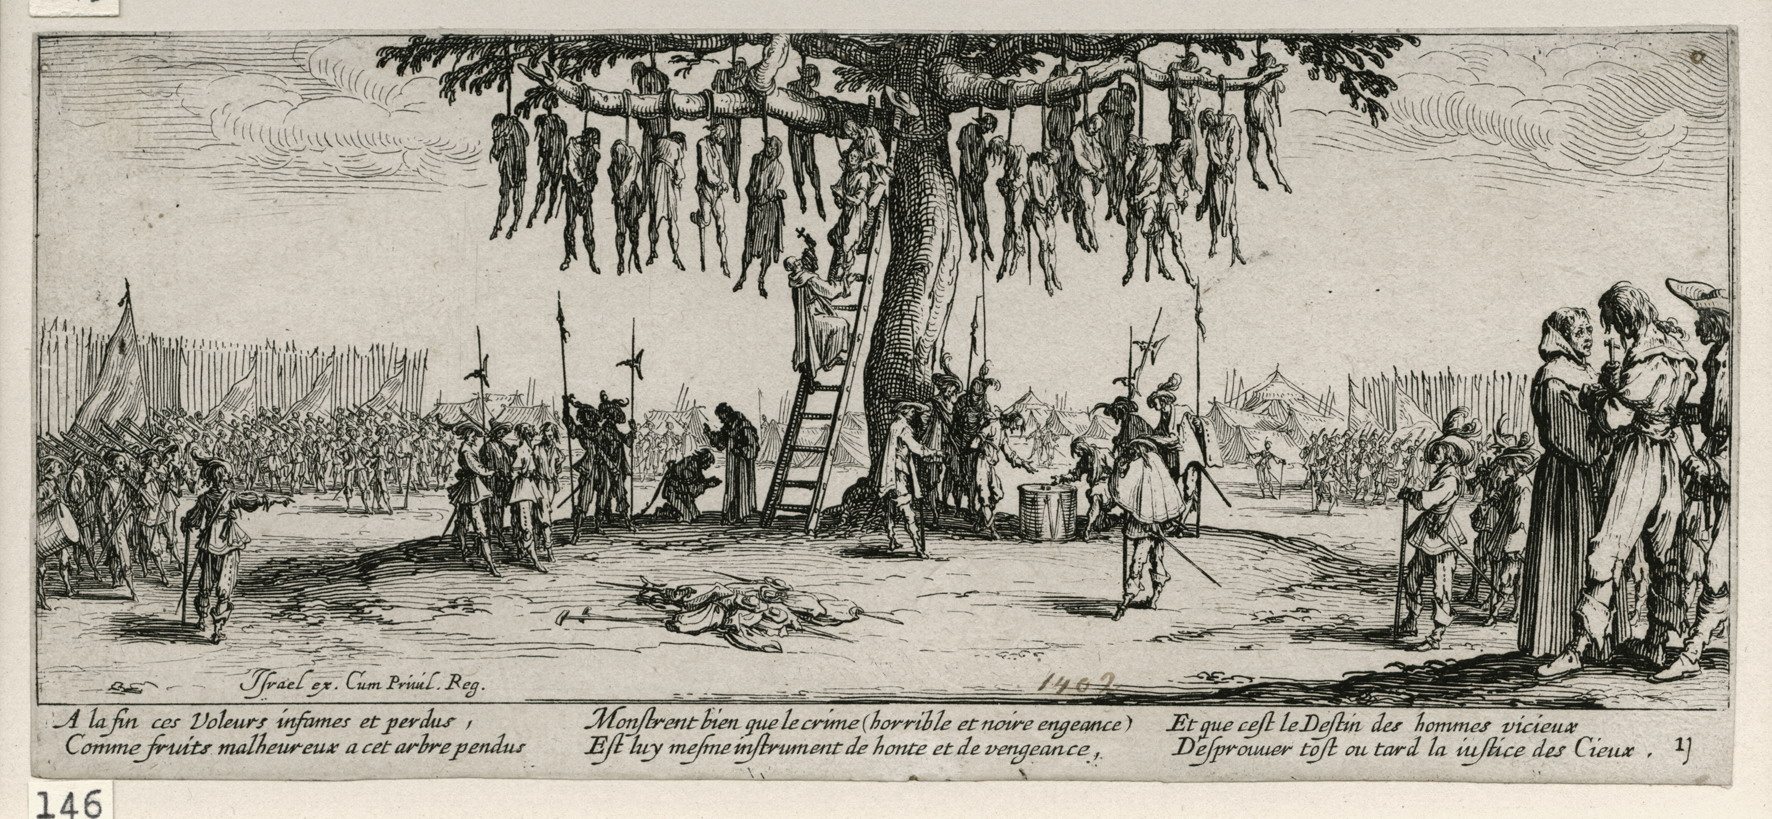 Israel ex. Cum Priuil. Reg.
1402
A la fin ces Voleurs infames et perdus ,
Comme fruits malheureux a cet arbre pendus
Monstrent bien que le crime (horrible et noire engeance)
Est luy mesme instrument de honte et de vengeance ,
Et que cest le Destin des hommes vicieux
Desprouuer tost ou tard la iustice des Cieux . 11
146